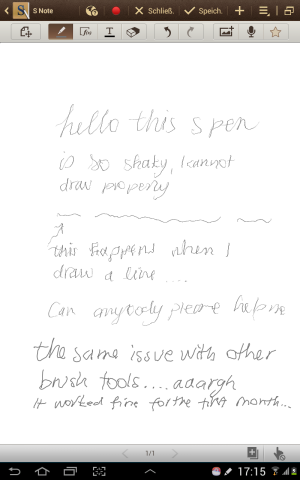 S Note
Schließ.
Speich.
hello this s pen
is so shaky, I cannot
draw properly
this happens when I
draw a line....
Can anybody please help me
the same issue with other
brush tools....aaargh
it worked fine for the first month...
1/1
17:15